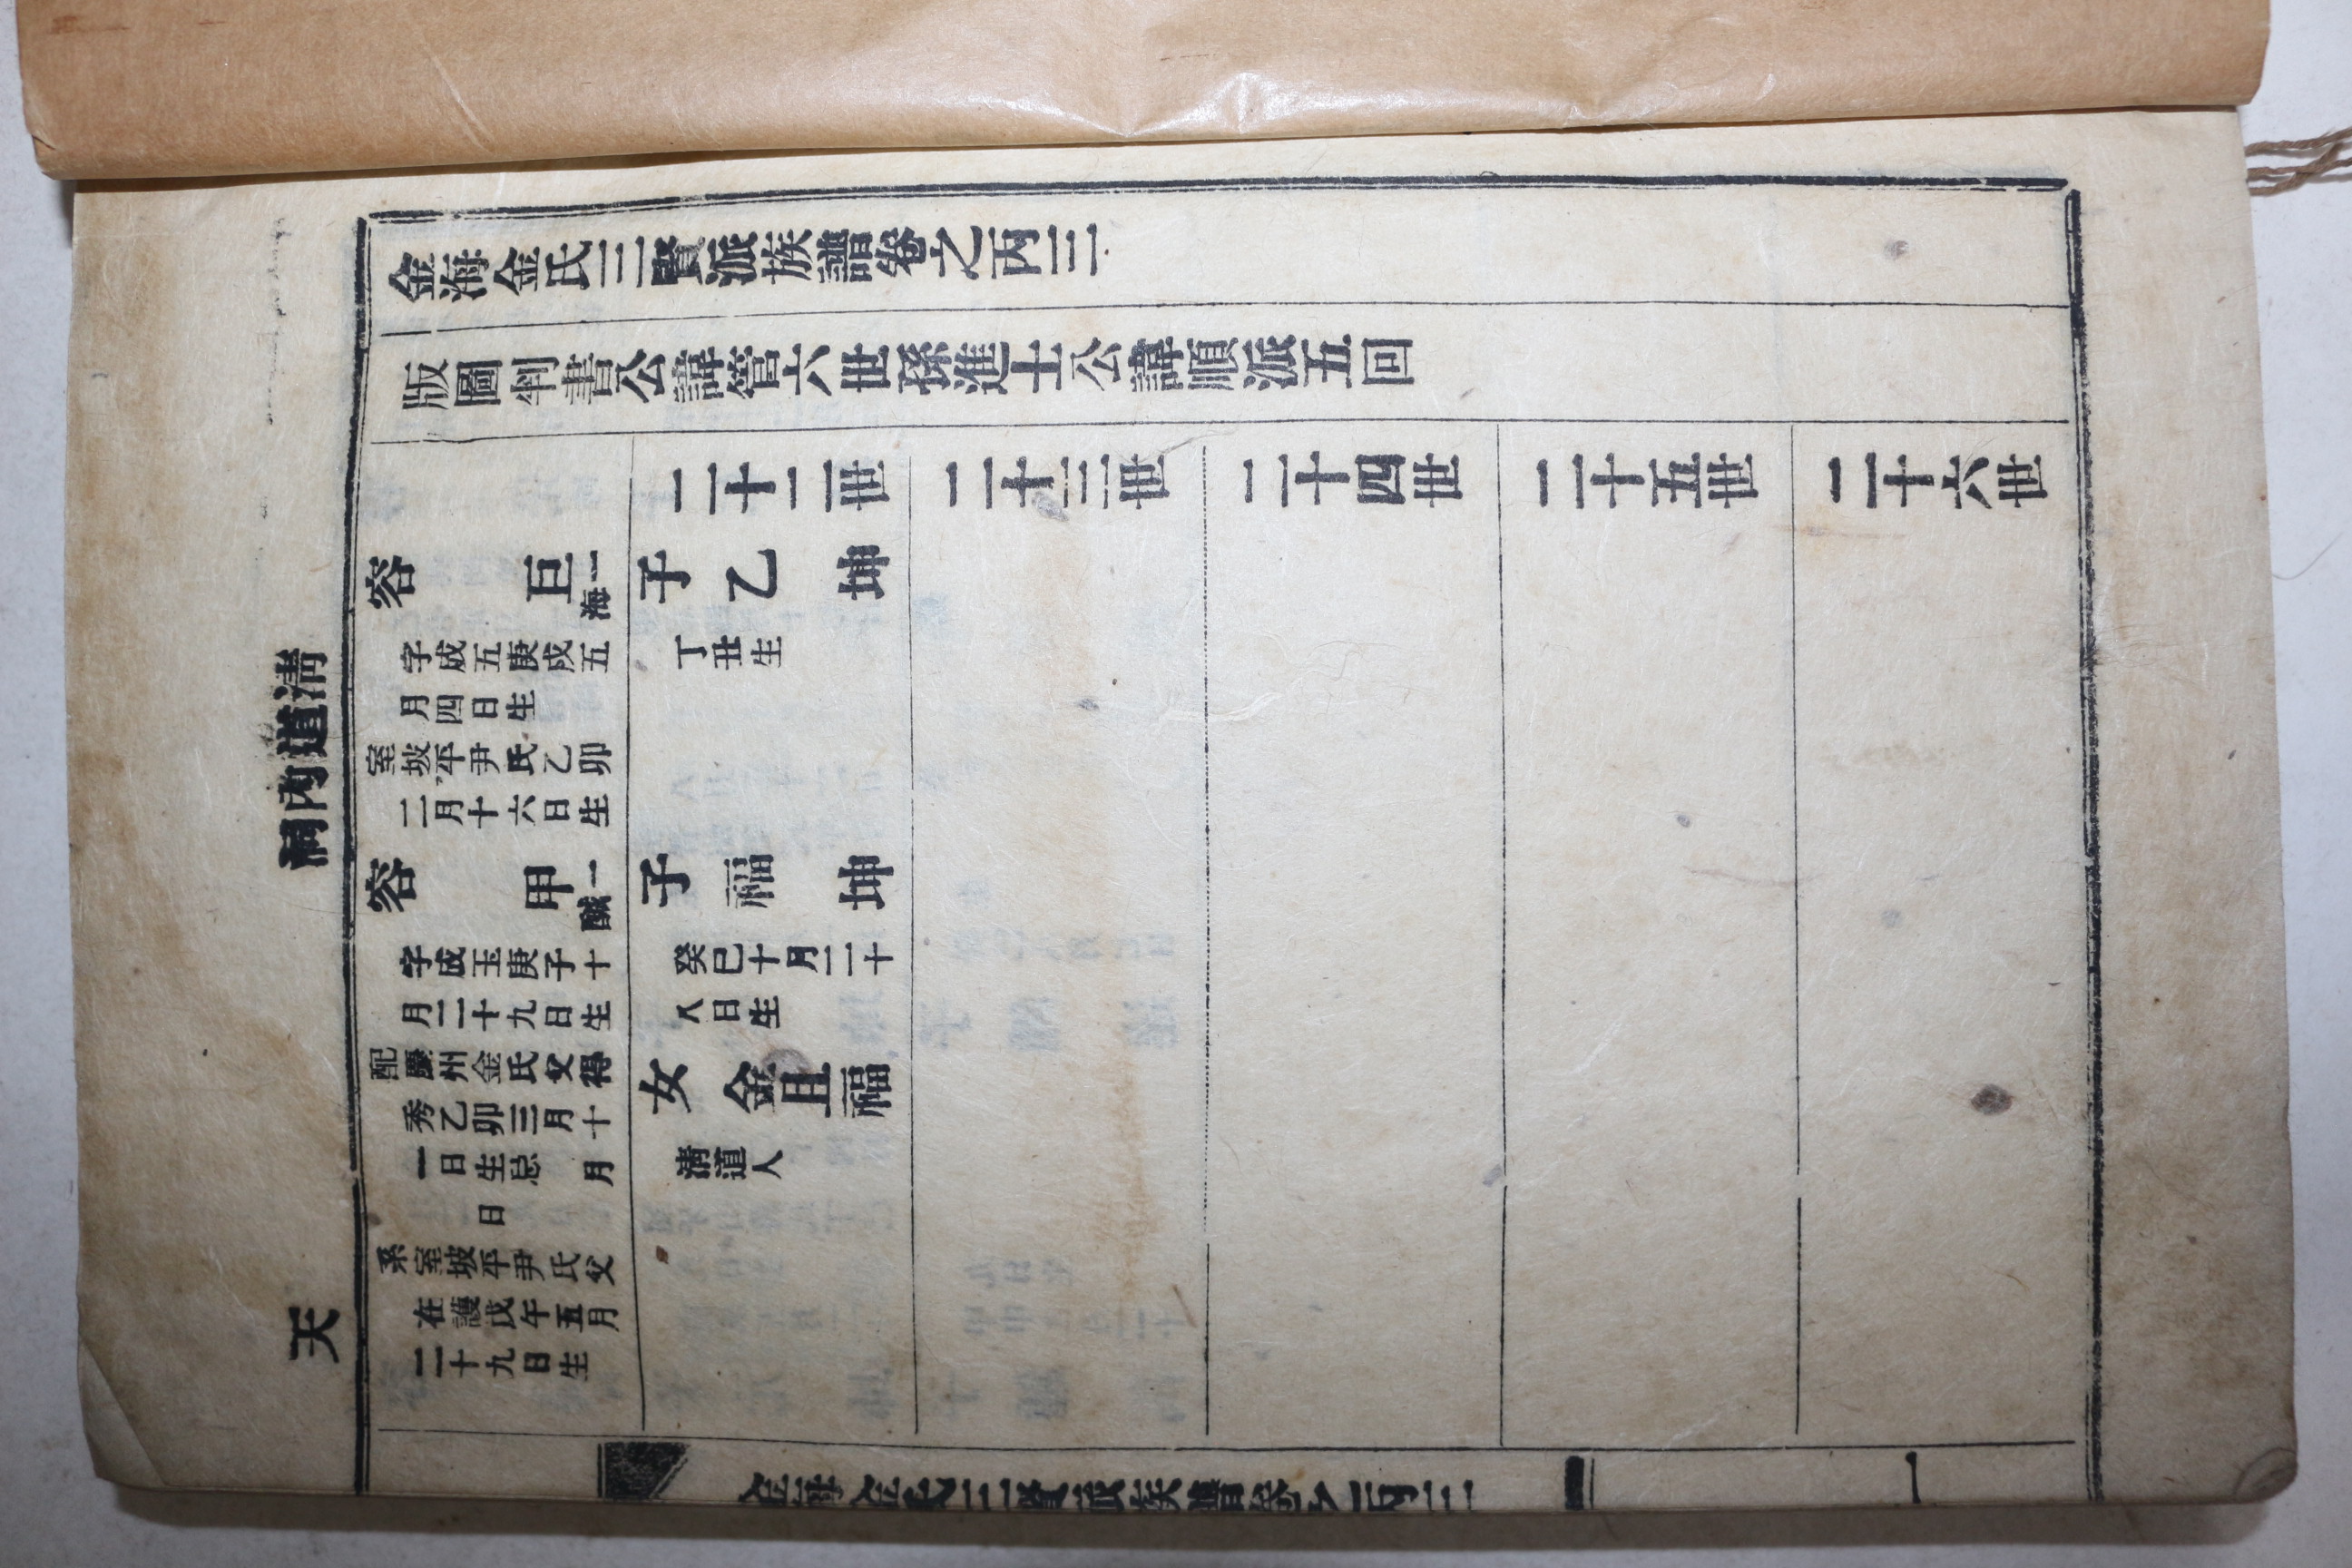 金海金氏三賢派族譜卷之丙三
版圖判書公諱管六世孫進士公諱順派五回
二十二世
二十三世
二十四世
二十五世
二十六世
容巨
一海
字成五庚戌五
月四日生
室坡平尹氏乙卯
二月十六日生
容甲
一醎
字成玉庚子十
月二十九日生
配慶州金氏父得
秀乙卯三月十
一日生忌 月
日
系室坡平尹氏父
在護戊午五月
二十九日生
子乙坤
丁丑生
子福坤
癸巳十月二十
八日生
女金且福
清道人
清道內祠
天
金海金氏三賢派族譜卷之丙三
一